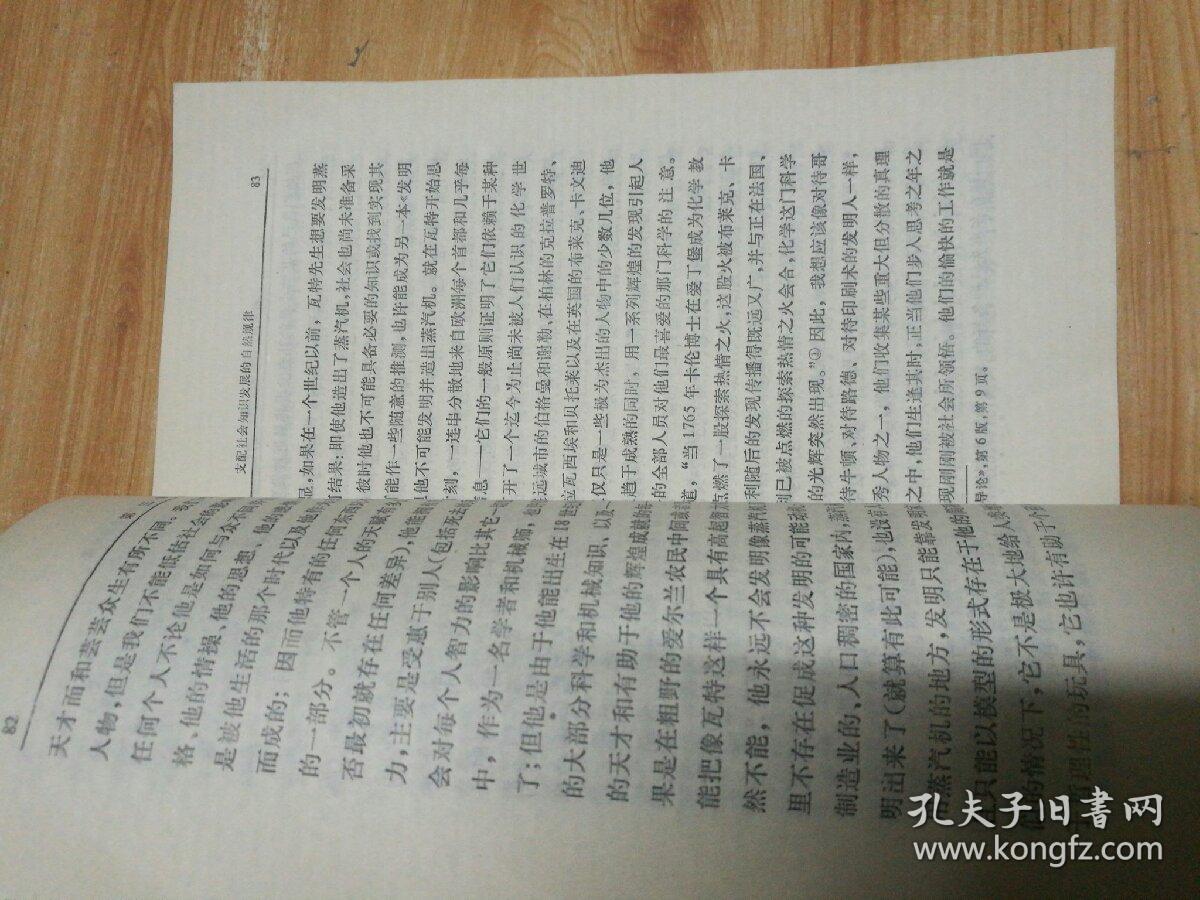 82
天才而和芸芸众生有所不同。
人物，但是我们不能低估社会的
任何个人不论他是如何与众不同
格、他的情操、他的思想、他的
是被他生活的那个时代以及他的
而成的；因而他特有的任何
的一部分。不管一个人的天赋
否最初就存在任何差异)，他能
力，主要是受惠于别人(包括死去
会对每个人智力的影响比其它
中，作为一名学者和机械师，
了；但他是由于他能出生在18
的大部分科学和机械知识、以及
的天才和有助于他的辉煌成就的
果是在粗野的爱尔兰农民中间
能把像瓦特这样一个具有高超
然不能，他永远不会发明像蒸汽
里不存在促成这种发明的可能
制造业的、人口稠密的国家内，
明出来了(就算有此可能，也没有
蒸汽机的地方，发明只能
只能以模型的形式存在于他的
的情况下，它不是极大地给人
理性的玩具，它也许有助于
支配社会知识发展的自然规律
83
显，如果在一个世纪以前，瓦特先生想要发明蒸
结果：即使他造出了蒸汽机，社会也尚未准备采
彼时他也不可能具备必要的知识或找到实现其
能作一些随意的推测，也许能成为另一本《发明
他不可能发明并造出蒸汽机。就在瓦特开始思
刻，一连串分散地来自欧洲每个首都和几乎每
息——它们的一般原则证明了它们依赖于某种
开了一个迄今为止尚未被人们认识的化学世
远城市的伯格曼和谢勒、在柏林的克拉普罗特、
拉瓦西埃和贝托莱以及在英国的布莱克、卡文迪
仅只是一些极为杰出的人物中的少数几位，他
趋于成熟的同时，用一系列辉煌的发现引起人
的全部人员对他们最喜爱的那门科学的注意。
道，“当1765年卡伦博士在爱丁堡成为化学教
点燃了一股探索热情之火，这股火被布莱克、卡
利随后的发现传播得既远又广，并与正在法国、
已被点燃的探索热情之火会合，化学这门科学
的光辉突然出现。”① 因此，我想应该像对待哥
待牛顿、对待路德、对待印刷术的发明人一样，
秀人物之一，他们收集某些重大但分散的真理
之中，他们生逢其时，正当他们步入思考之年之
现刚刚被社会所领悟。他们的愉快的工作就是
导论》，第6版，第9页。
孔夫子旧书网
www.kongfz.com